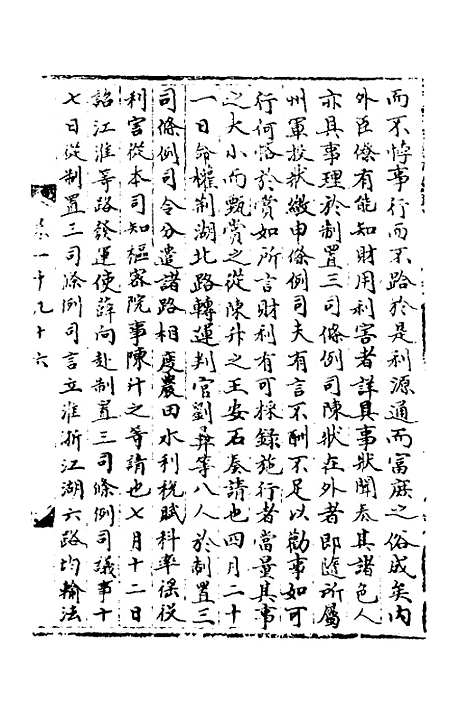 而不悖事行而不跲於是利源通而富庶之俗成矣内
外臣僚有能知財用利害者詳具事狀聞奏其諸色人
亦具事理於制置三司條例司陳狀在外者即隨所屬
州軍投狀繳申條例司夫有言不酬不足以勸事如可
行何恡於賞如所言財利有可採錄施行者當量其事
之大小而甄賞之從陳升之王安石奏請也四月二十
一日命權荆湖北路轉運判官劉彞等八人於制置三
司條例司令分遣諸路相度農田水利稅賦科率徭役
利害從本司知樞密院事陳升之等請也七月十二日
詔江淮等路發運使薛向赴制置三司條例司議事十
七日從制置三司條例司言立淮浙江湖六路均輸法
卷一千九十六